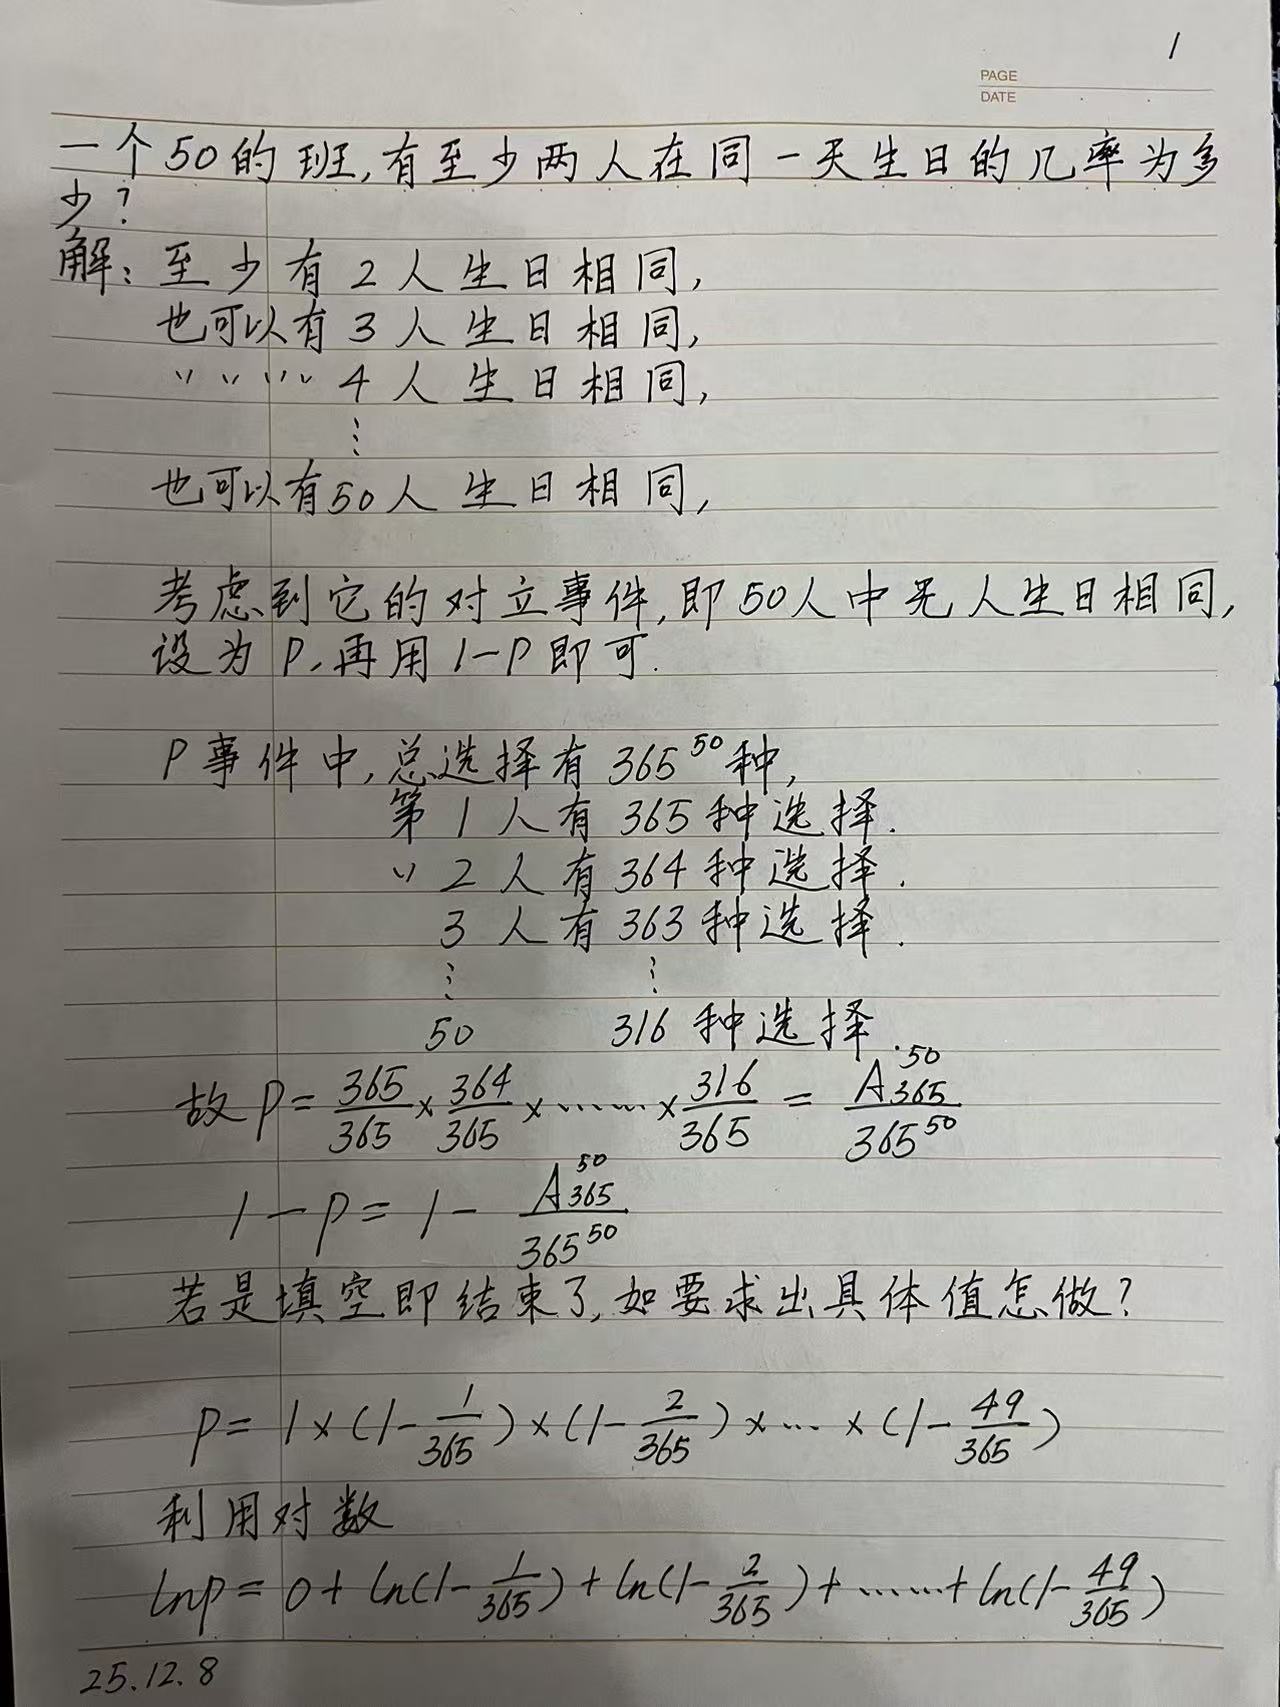 1
PAGE
DATE
一个50的班,有至少两人在同一天生日的几率为多
少?
解:至少有2人生日相同,
也可以有3人生日相同,
〃〃〃〃4人生日相同,
⋮
也可以有50人生日相同,
考虑到它的对立事件,即50人中无人生日相同,
设为P,再用1-P即可.
P事件中,总选择有365^50种,
第1人有365种选择.
〃2人有364种选择.
3人有363种选择.
⋮ ⋮
50 316种选择.
故P=365/365×364/365×……×316/365=A_365^50/365^50
1-P=1-A_365^50/365^50
若是填空即结束了,如要求出具体值怎做?
P=1×(1-1/365)×(1-2/365)×…×(1-49/365)
利用对数
lnp=0+ln(1-1/365)+ln(1-2/365)+……+ln(1-49/365)
25.12.8